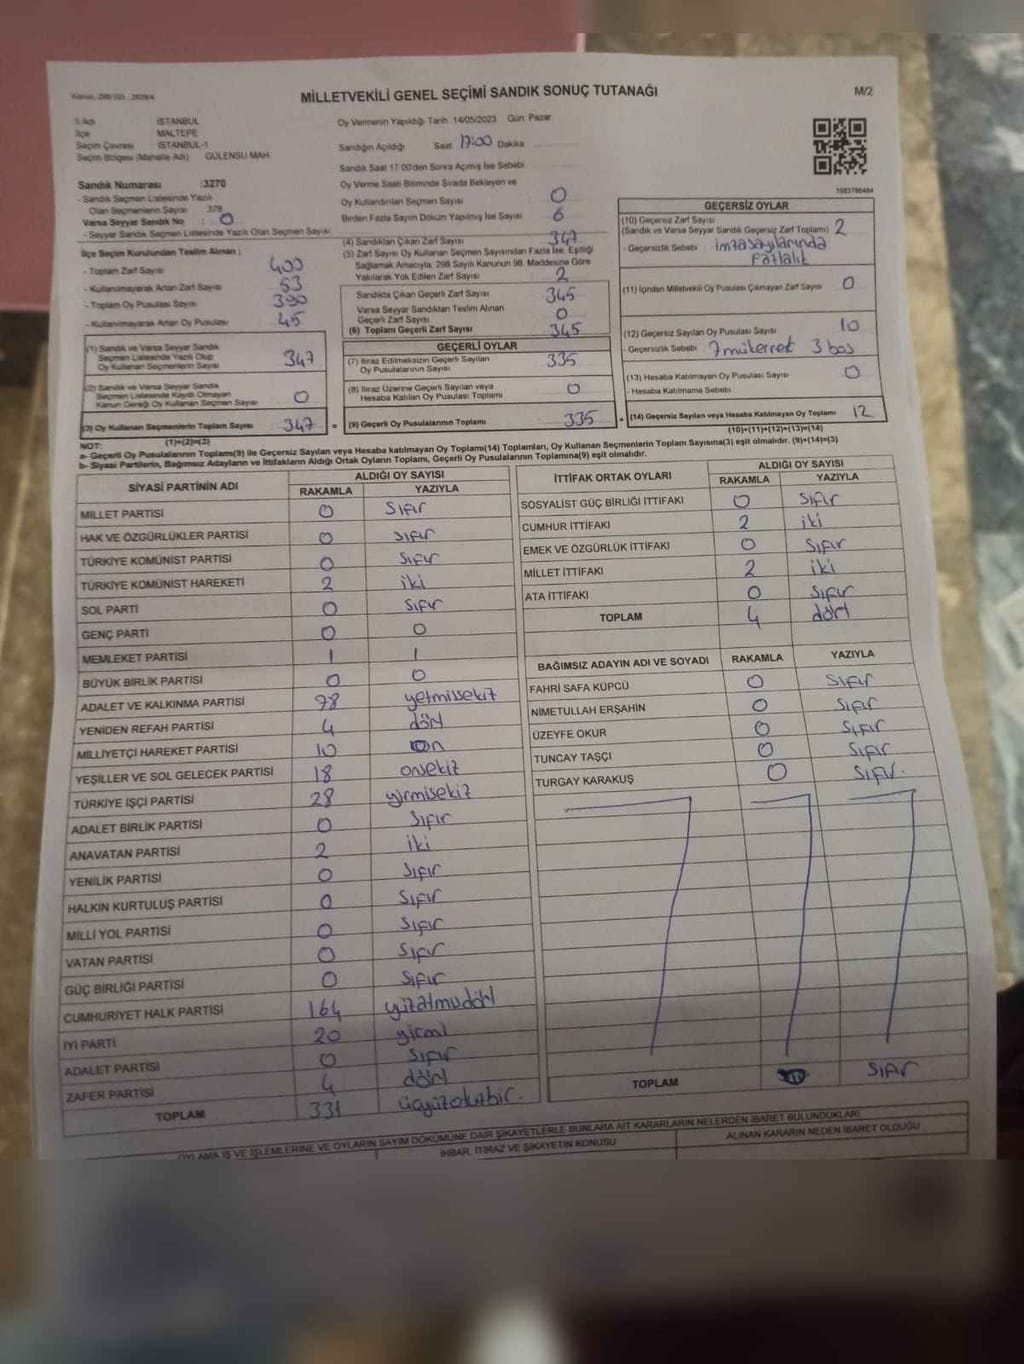 MİLLETVEKİLİ GENEL SEÇİMİ SANDIK SONUÇ TUTANAĞI
M/2
İli Adı İSTANBUL
İlçe MALTEPE
Seçim Çevresi İSTANBUL-1
Seçim Bölgesi (Mahalle Adı) GÜLENSU MAH.
Sandık Numarası :3270
- Sandık Seçmen Listesinde Yazılı
Olan Seçmenlerin Sayısı 379
Varsa Seyyar Sandık No : 0
- Seyyar Sandık Seçmen Listesinde Yazılı Olan Seçmen Sayısı
İlçe Seçim Kurulundan Teslim Alınan ;
- Toplam Zarf Sayısı 400
- Kullanılmayarak Artan Zarf Sayısı 53
- Toplam Oy Pusulası Sayısı 390
- Kullanılmayarak Artan Oy Pusulası 45
(1) Sandık ve Varsa Seyyar Sandık
Seçmen Listesinde Yazılı Olup
Oy Kullanan Seçmenlerin Sayısı 347
(2) Sandık ve Varsa Seyyar Sandık
Seçmen Listesinde Kayıtlı Olmayan
Kanun Gereği Oy Kullanan Seçmen Sayısı 0
(3) Oy Kullanan Seçmenlerin Toplam Sayısı 347
(1)+(2)=(3)
Oy Vermenin Yapıldığı Tarih 14/05/2023 Gün: Pazar
Sandığın Açıldığı Saat 17:00 Dakika
Sandık Saat 17:00'den Sonra Açılmış İse Sebebi
Oy Verme Saati Bitiminde Sırada Bekleyen ve
Oy Kullandırılan Seçmen Sayısı 0
Birden Fazla Sayım Döküm Yapılmış İse Sayısı 6
(4) Sandıktan Çıkan Zarf Sayısı 347
(5) Zarf Sayısı Oy Kullanan Seçmen Sayısından Fazla İse, Eşitliği
Sağlamak Amacıyla, 298 Sayılı Kanunun 98. Maddesine Göre
Yakılarak Yok Edilen Zarf Sayısı 2
Sandıkta Çıkan Geçerli Zarf Sayısı 345
Varsa Seyyar Sandıktan Teslim Alınan
Geçerli Zarf Sayısı 0
(6) Toplam Geçerli Zarf Sayısı 345
GEÇERLİ OYLAR
(7) İtiraz Edilmeksizin Geçerli Sayılan
Oy Pusulalarının Sayısı 335
(8) İtiraz Üzerine Geçerli Sayılan veya
Hesaba Katılan Oy Pusulası Toplamı 0
= (9) Geçerli Oy Pusulalarının Toplamı 335
1083786484
GEÇERSİZ OYLAR
(10) Geçersiz Zarf Sayısı
(Sandık ve Varsa Seyyar Sandık Geçersiz Zarf Toplamı) 2
- Geçersizlik Sebebi imza sayılarında
fazlalık
(11) İçinden Milletvekili Oy Pusulası Çıkmayan Zarf Sayısı 0
(12) Geçersiz Sayılan Oy Pusulası Sayısı 10
- Geçersizlik Sebebi 7 mükerret 3 boş
(13) Hesaba Katılmayan Oy Pusulası Sayısı 0
- Hesaba Katılmama Sebebi
+ (14) Geçersiz Sayılan veya Hesaba Katılmayan Oy Toplamı 12
(10)+(11)+(12)+(13)=(14)
NOT:
a- Geçerli Oy Pusulalarının Toplamı(9) ile Geçersiz Sayılan veya Hesaba katılmayan Oy Toplamı(14) Toplamları, Oy Kullanan Seçmenlerin Toplam Sayısına(3) eşit olmalıdır. (9)+(14)=(3)
b- Siyasi Partilerin, Bağımsız Adayların ve İttifakların Aldığı Ortak Oyların Toplamı, Geçerli Oy Pusulalarının Toplamına(9) eşit olmalıdır.
SİYASİ PARTİNİN ADI ALDIĞI OY SAYISI
RAKAMLA YAZIYLA
MİLLET PARTİSİ 0 Sıfır
HAK VE ÖZGÜRLÜKLER PARTİSİ 0 Sıfır
TÜRKİYE KOMÜNİST PARTİSİ 0 Sıfır
TÜRKİYE KOMÜNİST HAREKETİ 2 iki
SOL PARTİ 0 Sıfır
GENÇ PARTİ 0 0
MEMLEKET PARTİSİ 1 1
BÜYÜK BİRLİK PARTİSİ 0 0
ADALET VE KALKINMA PARTİSİ 78 yetmişsekiz
YENİDEN REFAH PARTİSİ 4 dört
MİLLİYETÇİ HAREKET PARTİSİ 10 on
YEŞİLLER VE SOL GELECEK PARTİSİ 18 onsekiz
TÜRKİYE İŞÇİ PARTİSİ 28 yirmisekiz
ADALET BİRLİK PARTİSİ 0 Sıfır
ANAVATAN PARTİSİ 2 iki
YENİLİK PARTİSİ 0 Sıfır
HALKIN KURTULUŞ PARTİSİ 0 Sıfır
MİLLİ YOL PARTİSİ 0 Sıfır
VATAN PARTİSİ 0 Sıfır
GÜÇ BİRLİĞİ PARTİSİ 0 Sıfır
CUMHURİYET HALK PARTİSİ 164 yüzatmışdört
İYİ PARTİ 20 yirmi
ADALET PARTİSİ 0 Sıfır
ZAFER PARTİSİ 4 dört
TOPLAM 331 üçyüzotuzbir.
İTTİFAK ORTAK OYLARI ALDIĞI OY SAYISI
RAKAMLA YAZIYLA
SOSYALİST GÜÇ BİRLİĞİ İTTİFAKI 0 Sıfır
CUMHUR İTTİFAKI 2 iki
EMEK VE ÖZGÜRLÜK İTTİFAKI 0 Sıfır
MİLLET İTTİFAKI 2 iki
ATA İTTİFAKI 0 Sıfır
TOPLAM 4 dört
BAĞIMSIZ ADAYIN ADI VE SOYADI RAKAMLA YAZIYLA
FAHRİ SAFA KÜPCÜ 0 Sıfır
NİMETULLAH ERŞAHİN 0 Sıfır
ÜZEYFE OKUR 0 Sıfır
TUNCAY TAŞÇI 0 Sıfır
TURGAY KARAKUŞ 0 Sıfır.
TOPLAM SIFIR
OYLAMA İŞ VE İŞLEMLERİNE VE OYLARIN SAYIM DÖKÜMÜNE DAİR ŞİKAYETLERLE BUNLARA AİT KARARLARIN NELERDEN İBARET BULUNDUKLARI
İHBAR, İTİRAZ VE ŞİKAYETİN KONUSU
ALINAN KARARIN NEDEN İBARET OLDUĞU